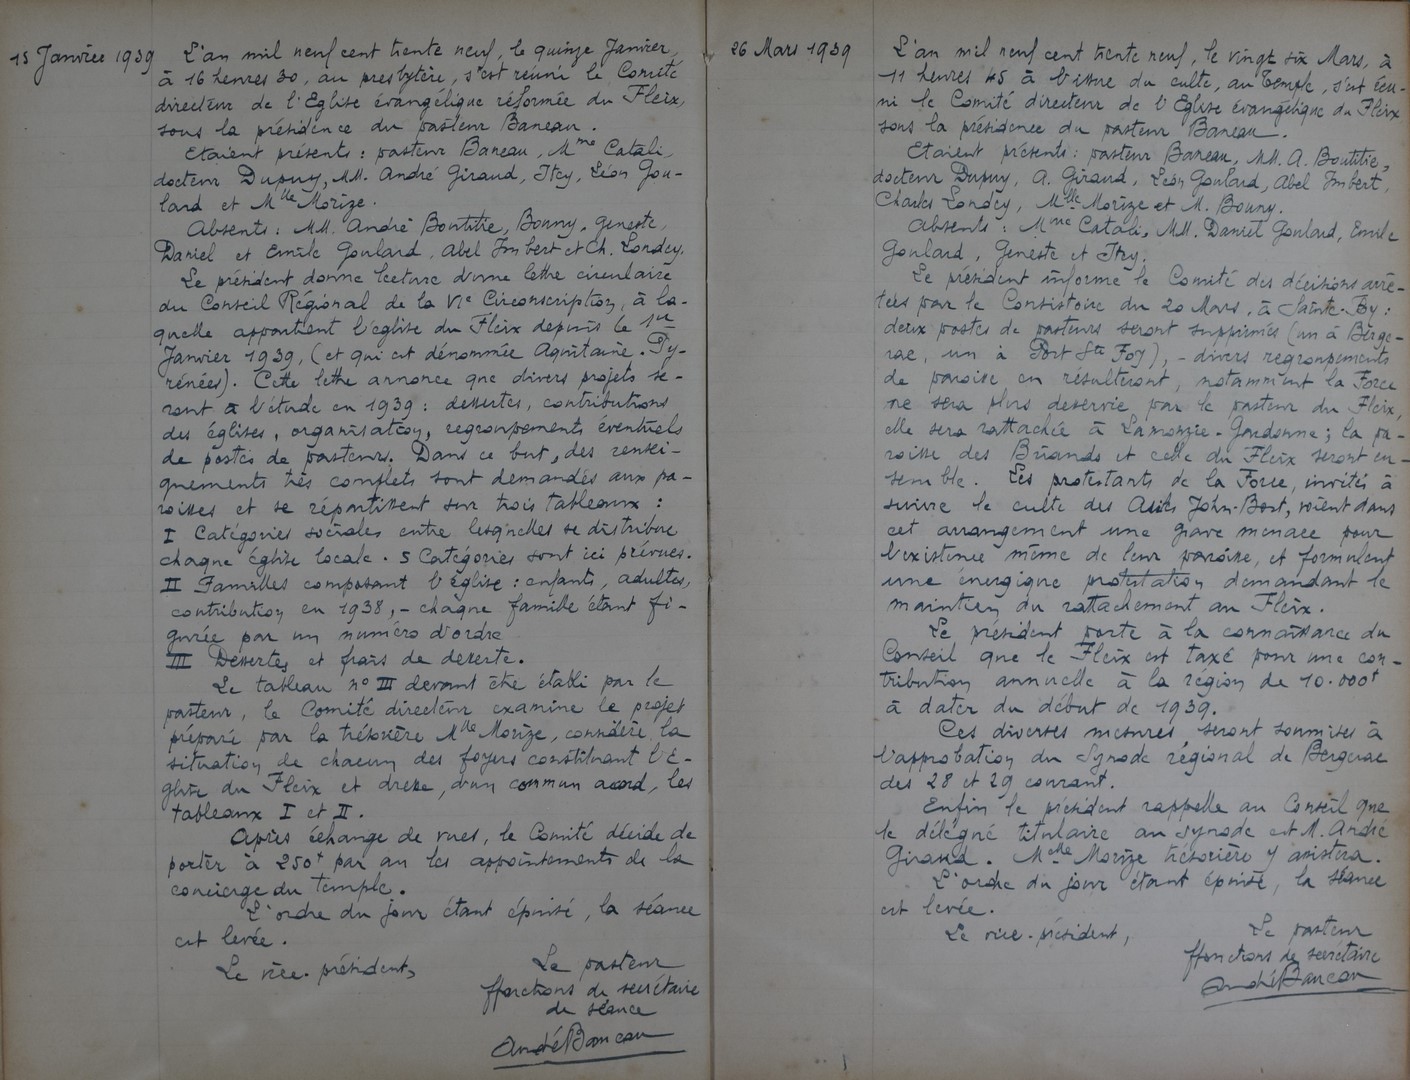 15 Janvier 1939
L'an mil neuf cent trente neuf, le quinze Janvier,
à 16 heures 30, au presbytère, s'est réuni le Comité
directeur de l'Eglise évangélique réformée du Fleix,
sous la présidence du pasteur Bancau.
Etaient présents : pasteur Bancau, Mme Catali,
docteur Dupuy, MM. André Giraud, Itey, Léon Gou-
lard et Mlle Morize.
Absents : MM. André Boutitie, Bouny, Geneste,
Daniel et Emile Goulard, Abel Imbert et Ch. Londey.
Le président donne lecture d'une lettre circulaire
du Conseil Régional de la VIe Circonscription, à la-
quelle appartient l'église du Fleix depuis le 1er
Janvier 1939, (et qui est dénommée Aquitaine-Py-
rénées). Cette lettre annonce que divers projets se-
ront à l'étude en 1939 : dessertes, contributions
des églises, organisation, regroupements éventuels
de postes de pasteurs. Dans ce but, des rensei-
gnements très complets sont demandés aux pa-
roisses et se répartissent sur trois tableaux :
I Catégories sociales entre lesquelles se distribue
chaque église locale. 5 Catégories sont ici prévues.
II Familles composant l'église : enfants, adultes,
contribution en 1938, - chaque famille étant fi-
gurée par un numéro d'ordre
III Dessertes et frais de desserte.
Le tableau n° III devant être établi par le
pasteur, le Comité directeur examine le projet
préparé par la trésorière Mlle Morize, considère la
situation de chacun des foyers constituant l'E-
glise du Fleix et dresse, d'un commun accord, les
tableaux I et II.
Après échange de vues, le Comité décide de
porter à 250f par an les appointements de la
concierge du Temple.
L'ordre du jour étant épuisé, la séance
est levée.
Le vice-président,
Le pasteur
ffonctions de secrétaire
de séance
André Bancau
26 Mars 1939
L'an mil neuf cent trente neuf, le vingt six Mars, à
11 heures 45 à l'issue du culte, au Temple, s'est réu-
ni le Comité directeur de l'Eglise évangélique du Fleix
sous la présidence du pasteur Bancau.
Etaient présents : pasteur Bancau, MM. A. Boutitie,
docteur Dupuy, A. Giraud, Léon Goulard, Abel Imbert,
Charles Londey, Mlle Morize et M. Bouny.
Absents : Mme Catali, MM. Daniel Goulard, Emile
Goulard, Geneste et Itey.
Le président informe le Comité des décisions arrê-
tées par le Consistoire du 20 Mars, à Sainte-Foy :
deux postes de pasteurs seront supprimés (un à Berge-
rac, un à Port Ste Foy), - divers regroupements
de paroisse en résulteront, notamment la Force
ne sera plus desservie par le pasteur du Fleix,
elle sera rattachée à Lamonzie-Gardonne ; la pa-
roisse des Briands et celle du Fleix seront en-
semble. Les protestants de la Force, invités à
suivre le culte des Asiles John-Bost, voient dans
cet arrangement une grave menace pour
l'existence même de leur paroisse, et formulent
une énergique protestation demandant le
maintien du rattachement au Fleix.
Le président porte à la connaissance du
Conseil que le Fleix est taxé pour une con-
tribution annuelle à la région de 10.000f
à dater du début de 1939.
Ces diverses mesures seront soumises à
l'approbation du Synode régional de Bergerac
des 28 et 29 courant.
Enfin le président rappelle au Conseil que
le délégué titulaire au synode est M. André
Giraud. Melle Morize trésorière y assistera.
L'ordre du jour étant épuisé, la séance
est levée.
Le vice-président,
Le pasteur
ffonctions de secrétaire
André Bancau